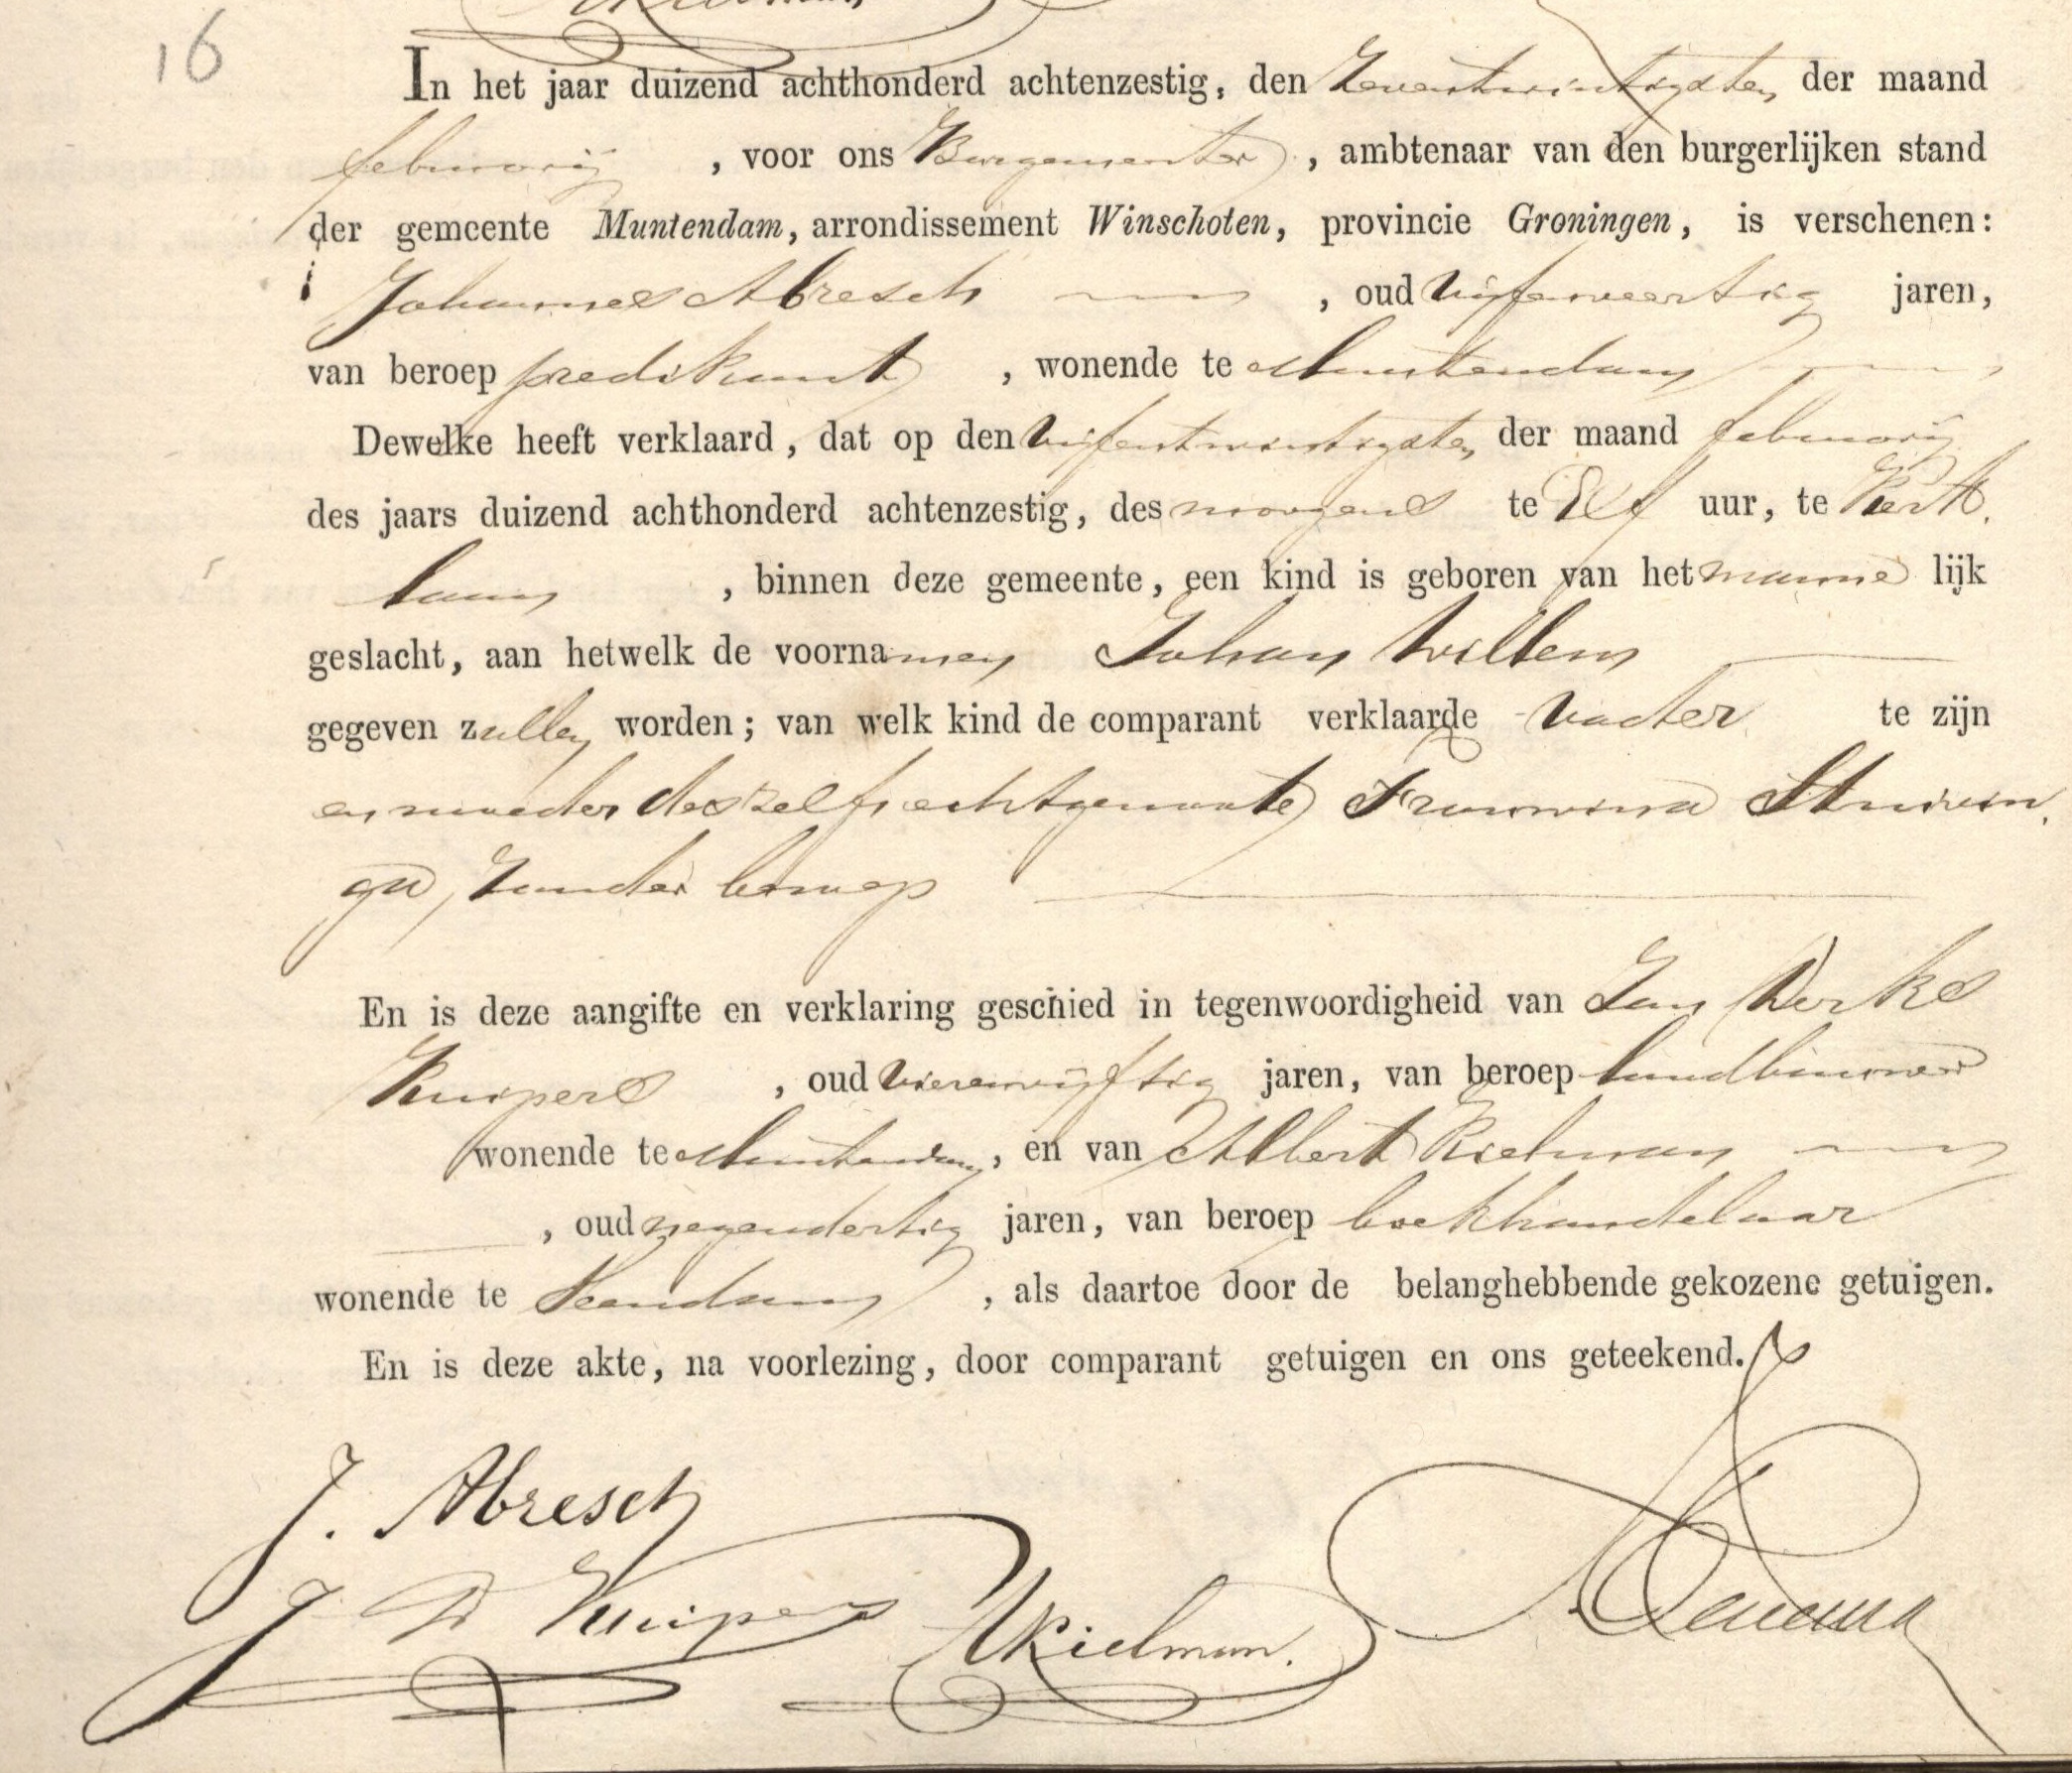 16
In het jaar duizend achthonderd achtenzestig, den Zevenentwintigsten der maand
februarij , voor ons Burgemeester , ambtenaar van den burgerlijken stand
der gemeente Muntendam, arrondissement Winschoten, provincie Groningen, is verschenen:
Johannes Abresch , oud vijfenveertig jaren,
van beroep predikant , wonende te Muntendam
Dewelke heeft verklaard, dat op den vijfentwintigsten der maand februarij
des jaars duizend achthonderd achtenzestig, des morgens te Elf uur, te Kerk
laan , binnen deze gemeente, een kind is geboren van het manne lijk
geslacht, aan hetwelk de voornamen Johan Willem
gegeven zullen worden; van welk kind de comparant verklaarde vader te zijn
en moeder deszelfs echtgenoote Frouwina Stuivin
ga, Zonder beroep
En is deze aangifte en verklaring geschied in tegenwoordigheid van Jan Derks
Kuipers , oud vierenvijftig jaren, van beroep landbouwer
wonende te Muntendam, en van Albert Kielman
, oud negendertig jaren, van beroep boekhandelaar
wonende te Veendam , als daartoe door de belanghebbende gekozene getuigen.
En is deze akte, na voorlezing, door comparant getuigen en ons geteekend.
J. Abresch
J D Kuipers
AKielman.